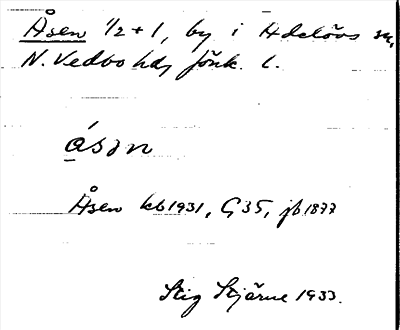 Åsen 1/2+1, by i Adelövs sn,
N. Vedbo hd, Jönk. l.
åsən
Åsen kb 1931, G35, jb 1877
Stig Stjärne 1933.